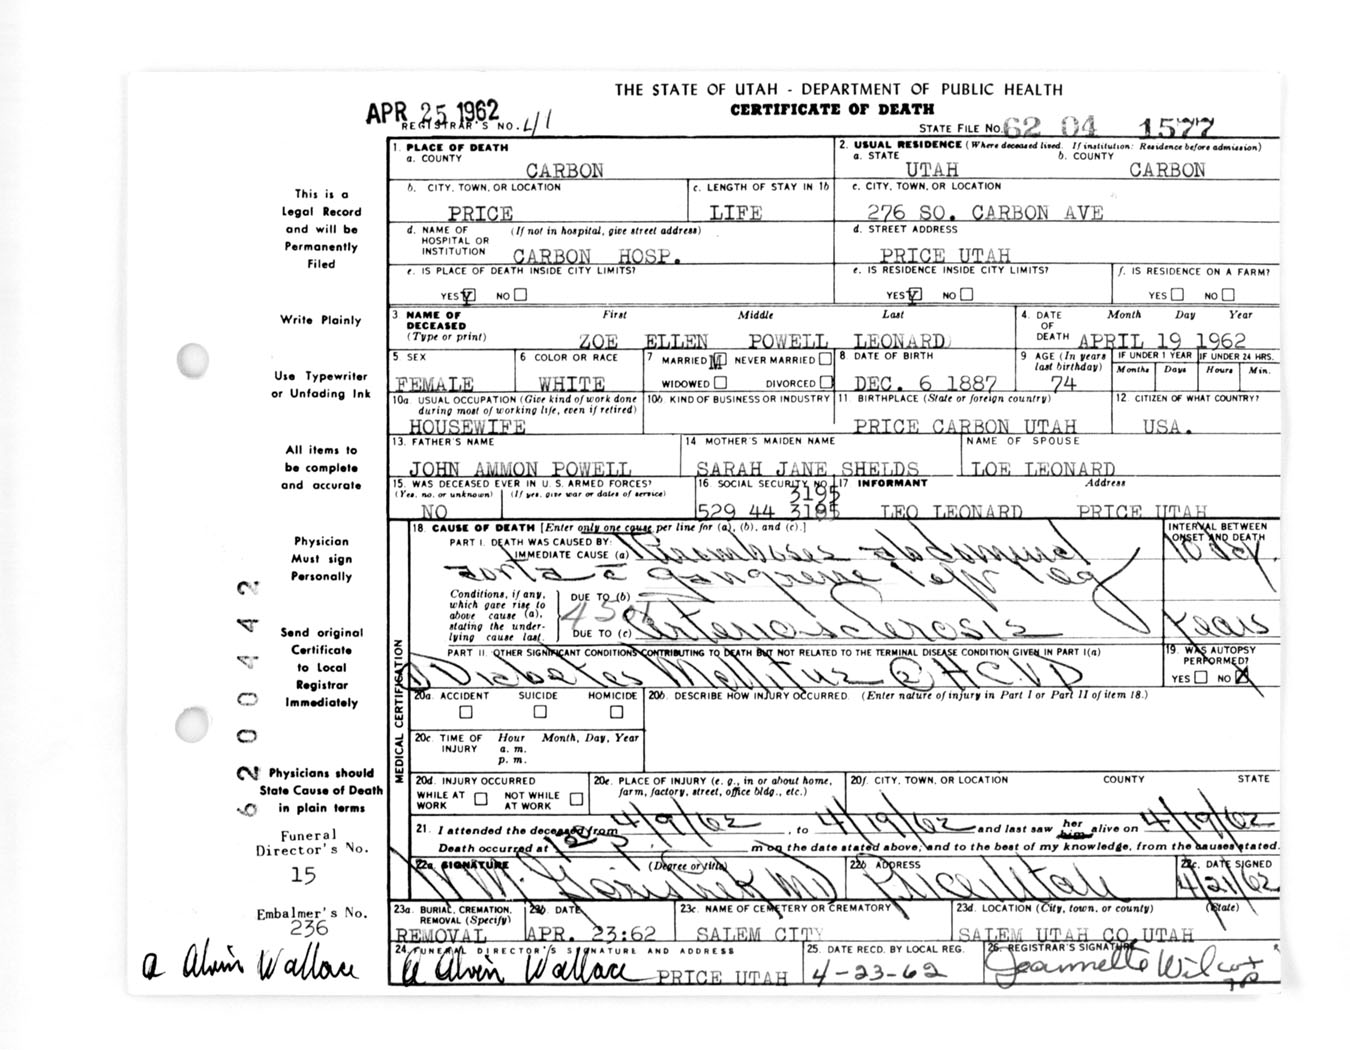 THE STATE OF UTAH - DEPARTMENT OF PUBLIC HEALTH
CERTIFICATE OF DEATH
APR 25 1962
REGISTRAR'S NO. 41
STATE FILE NO. 62 04 1577
1. PLACE OF DEATH
a. COUNTY
CARBON
2. USUAL RESIDENCE (Where deceased lived. If institution: Residence before admission)
a. STATE b. COUNTY
UTAH CARBON
b. CITY, TOWN, OR LOCATION
PRICE
c. LENGTH OF STAY IN 1b
LIFE
c. CITY, TOWN, OR LOCATION
276 SO. CARBON AVE
d. NAME OF HOSPITAL OR INSTITUTION (If not in hospital, give street address)
CARBON HOSP.
d. STREET ADDRESS
PRICE UTAH
e. IS PLACE OF DEATH INSIDE CITY LIMITS?
YES Y NO
e. IS RESIDENCE INSIDE CITY LIMITS?
YES Y NO
f. IS RESIDENCE ON A FARM?
YES NO
3 NAME OF DECEASED (Type or print)
First Middle Last
ZOE ELLEN POWELL LEONARD
4. DATE OF DEATH Month Day Year
APRIL 19 1962
5 SEX
FEMALE
6 COLOR OR RACE
WHITE
7 MARRIED M NEVER MARRIED
WIDOWED DIVORCED
8 DATE OF BIRTH
DEC. 6 1887
9 AGE (In years last birthday)
74
IF UNDER 1 YEAR IF UNDER 24 HRS.
Months Days Hours Min.
10a USUAL OCCUPATION (Give kind of work done during most of working life, even if retired)
HOUSEWIFE
10b. KIND OF BUSINESS OR INDUSTRY
11 BIRTHPLACE (State or foreign country)
PRICE CARBON UTAH
12 CITIZEN OF WHAT COUNTRY?
USA.
13. FATHER'S NAME
JOHN AMMON POWELL
14 MOTHER'S MAIDEN NAME
SARAH JANE SHELDS
NAME OF SPOUSE
LOE LEONARD
15. WAS DECEASED EVER IN U.S. ARMED FORCES?
(Yes, no, or unknown) (If yes, give war or dates of service)
NO
16 SOCIAL SECURITY NO.
3195
529 44
17 INFORMANT Address
LEO LEONARD PRICE UTAH
18. CAUSE OF DEATH [Enter only one cause per line for (a), (b), and (c).]
INTERVAL BETWEEN ONSET AND DEATH
PART I. DEATH WAS CAUSED BY:
IMMEDIATE CAUSE (a) Thromboses abdominal
aorta c̄ gangrene left leg
10 day.
Conditions, if any, which gave rise to above cause (a), stating the underlying cause last.
DUE TO (b)
DUE TO (c) Arteriosclerosis
years
PART II. OTHER SIGNIFICANT CONDITIONS CONTRIBUTING TO DEATH BUT NOT RELATED TO THE TERMINAL DISEASE CONDITION GIVEN IN PART I(a)
Diabetes Mellitus ② HCVD
19. WAS AUTOPSY PERFORMED?
YES NO X
MEDICAL CERTIFICATION
20a. ACCIDENT SUICIDE HOMICIDE
20b. DESCRIBE HOW INJURY OCCURRED. (Enter nature of injury in Part I or Part II of item 18.)
20c. TIME OF INJURY Hour Month, Day, Year
a. m.
p. m.
20d. INJURY OCCURRED
WHILE AT WORK NOT WHILE AT WORK
20e. PLACE OF INJURY (e. g., in or about home, farm, factory, street, office bldg., etc.)
20f. CITY, TOWN, OR LOCATION COUNTY STATE
21. I attended the deceased from 4/9/62, to 4/19/62 and last saw her him alive on 4/19/62
Death occurred at m on the date stated above; and to the best of my knowledge, from the causes stated.
22a. SIGNATURE (Degree or title)
MD
22b ADDRESS
Price, Utah
22c. DATE SIGNED
4/21/62
23a. BURIAL, CREMATION, REMOVAL (Specify)
REMOVAL
23b. DATE
APR. 23:62
23c. NAME OF CEMETERY OR CREMATORY
SALEM CITY
23d. LOCATION (City, town, or county) (State)
SALEM UTAH CO UTAH
24 FUNERAL DIRECTOR'S SIGNATURE AND ADDRESS
a Alvin Wallace PRICE UTAH
25. DATE RECD. BY LOCAL REG.
4-23-62
26. REGISTRAR'S SIGNATURE
Jeannette Wilcox
This is a
Legal Record
and will be
Permanently
Filed
Write Plainly
Use Typewriter
or Unfading Ink
All items to
be complete
and accurate
Physician
Must sign
Personally
Send original
Certificate
to Local
Registrar
Immediately
Physicians should
State Cause of Death
in plain terms
62 00442
Funeral
Director's No.
15
Embalmer's No.
236
a Alvin Wallace